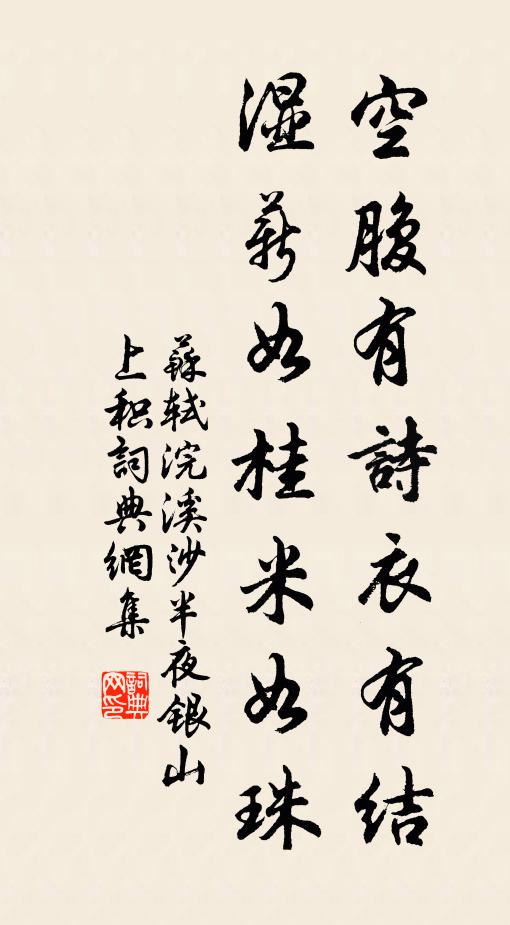 空腹有詩衣有结
濕薪如桂米如珠
蘇轼浣溪沙半夜银山
上积詞典網集
詞典网印